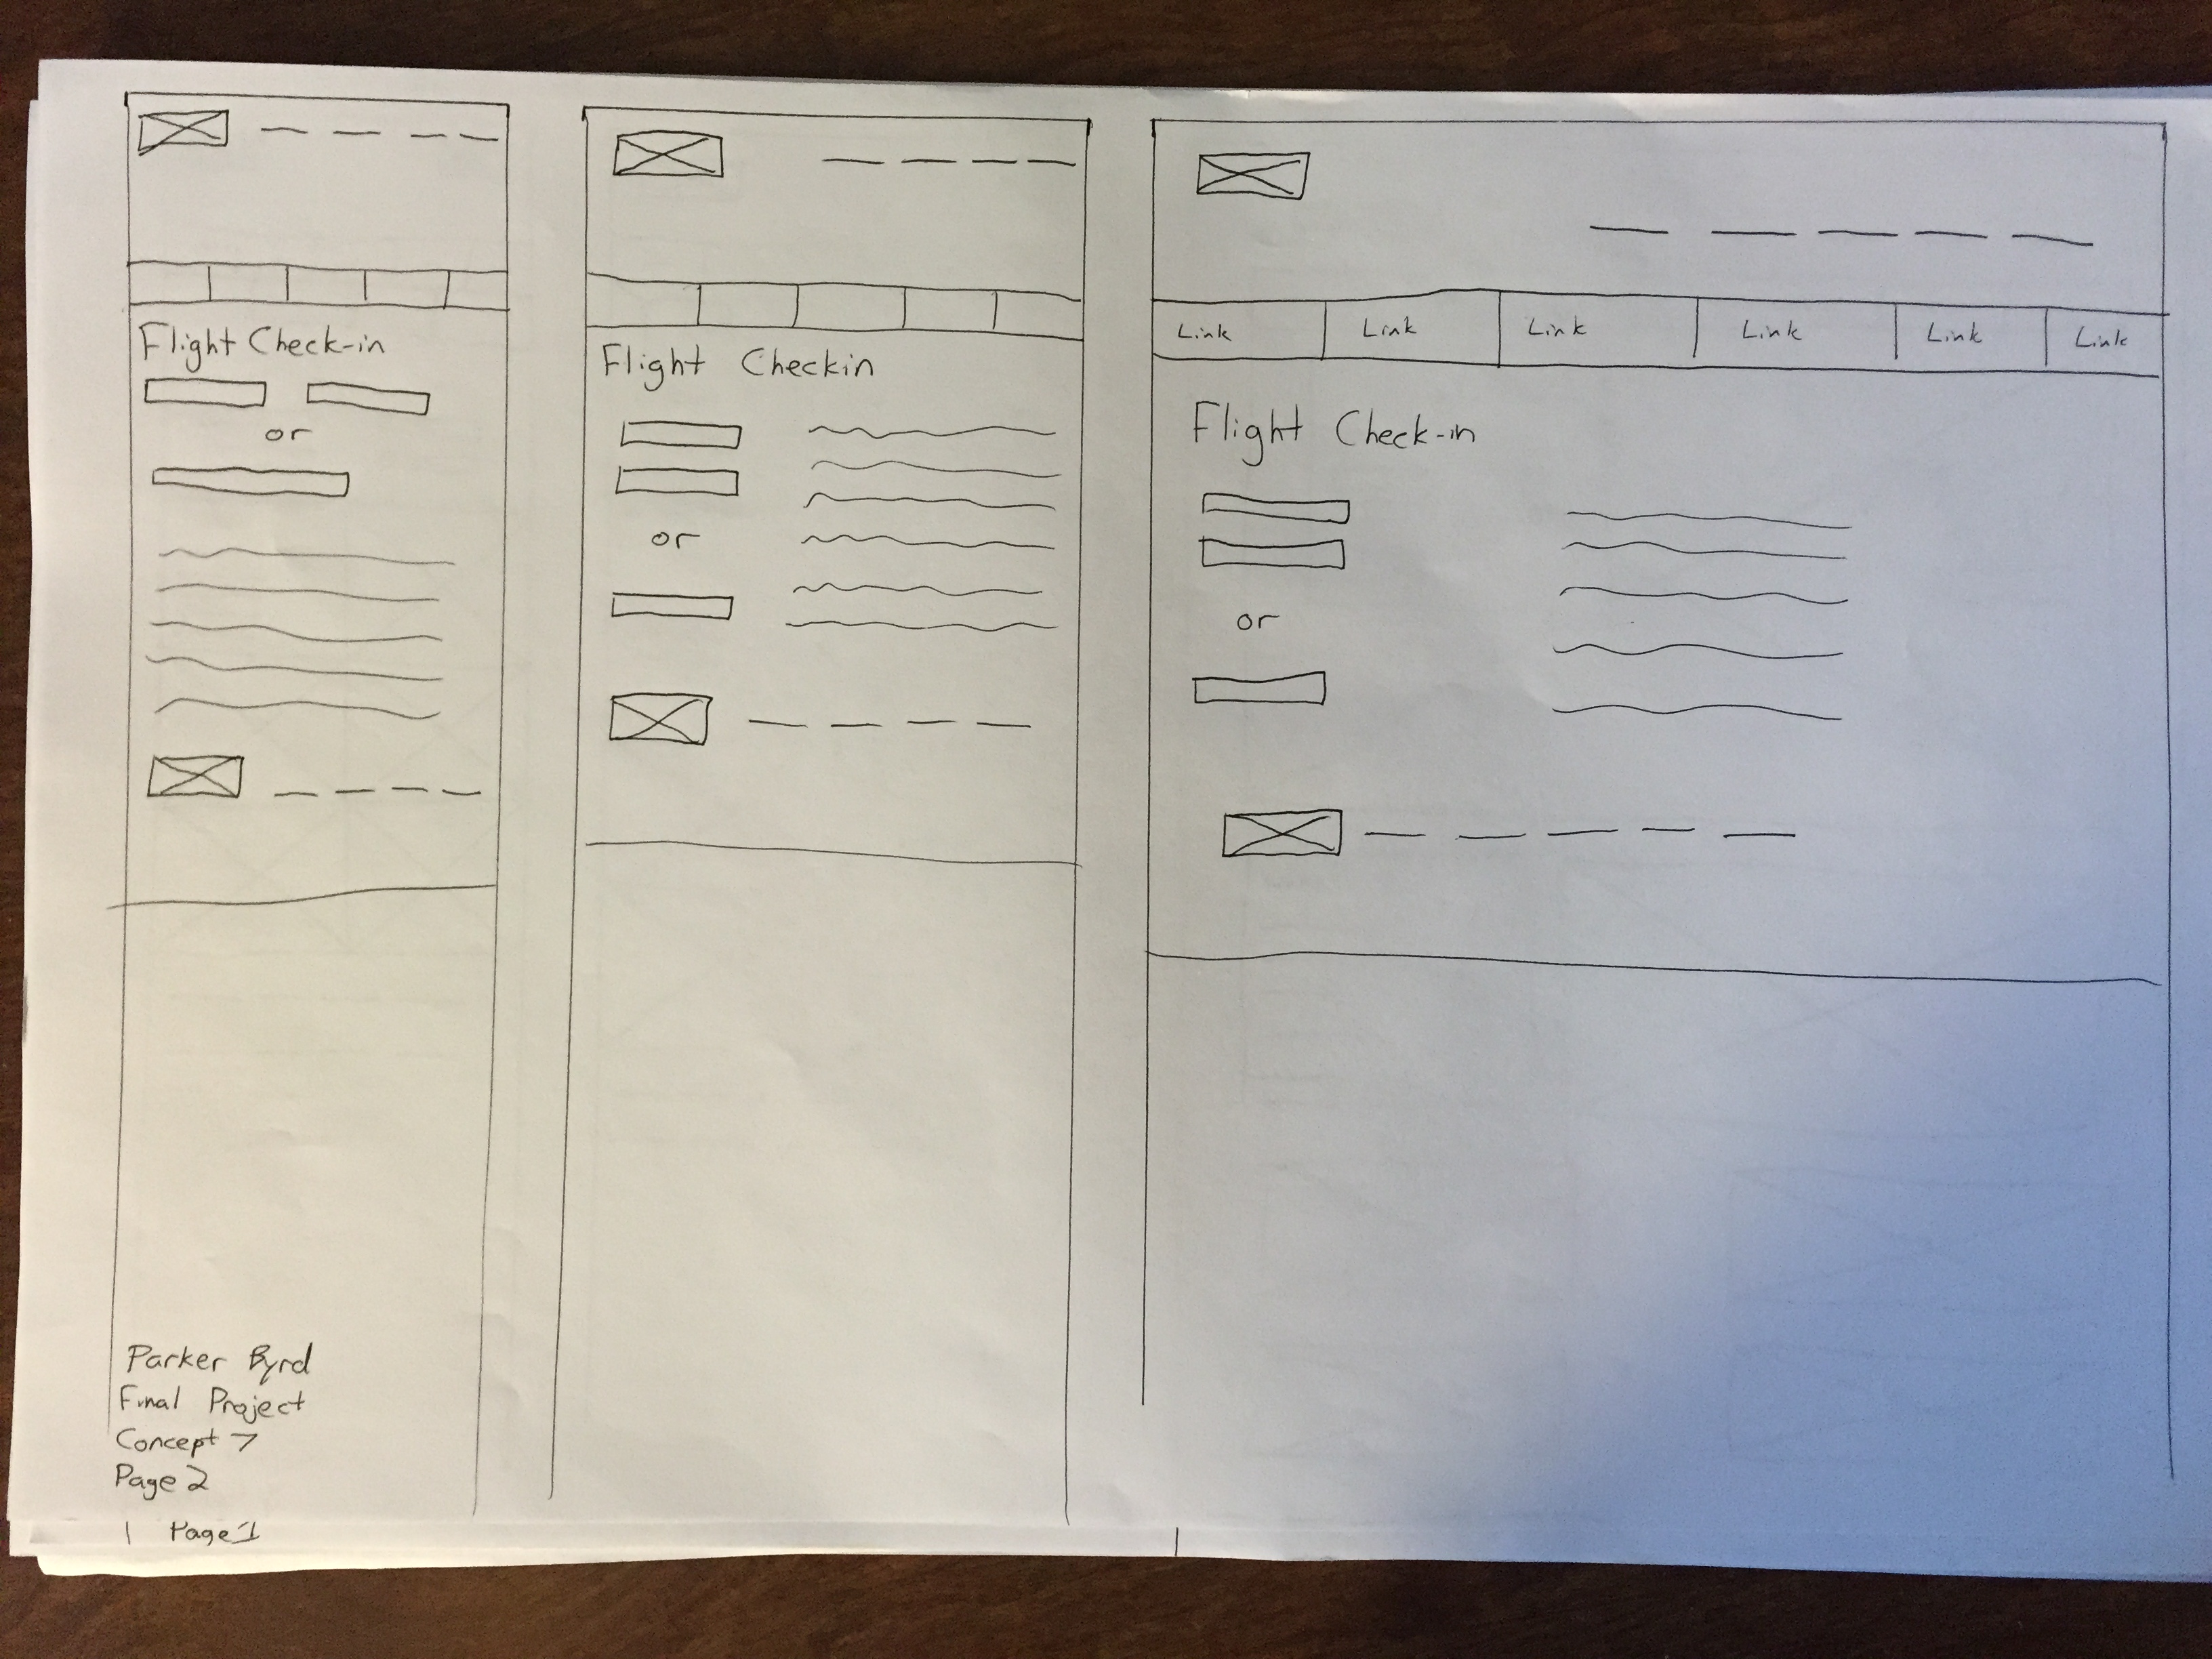 Flight Check-in
or
Flight Checkin
or
Link Link Link Link Link Link
Flight Check-in
or
Parker Byrd
Final Project
Concept 7
Page 2
Page 1